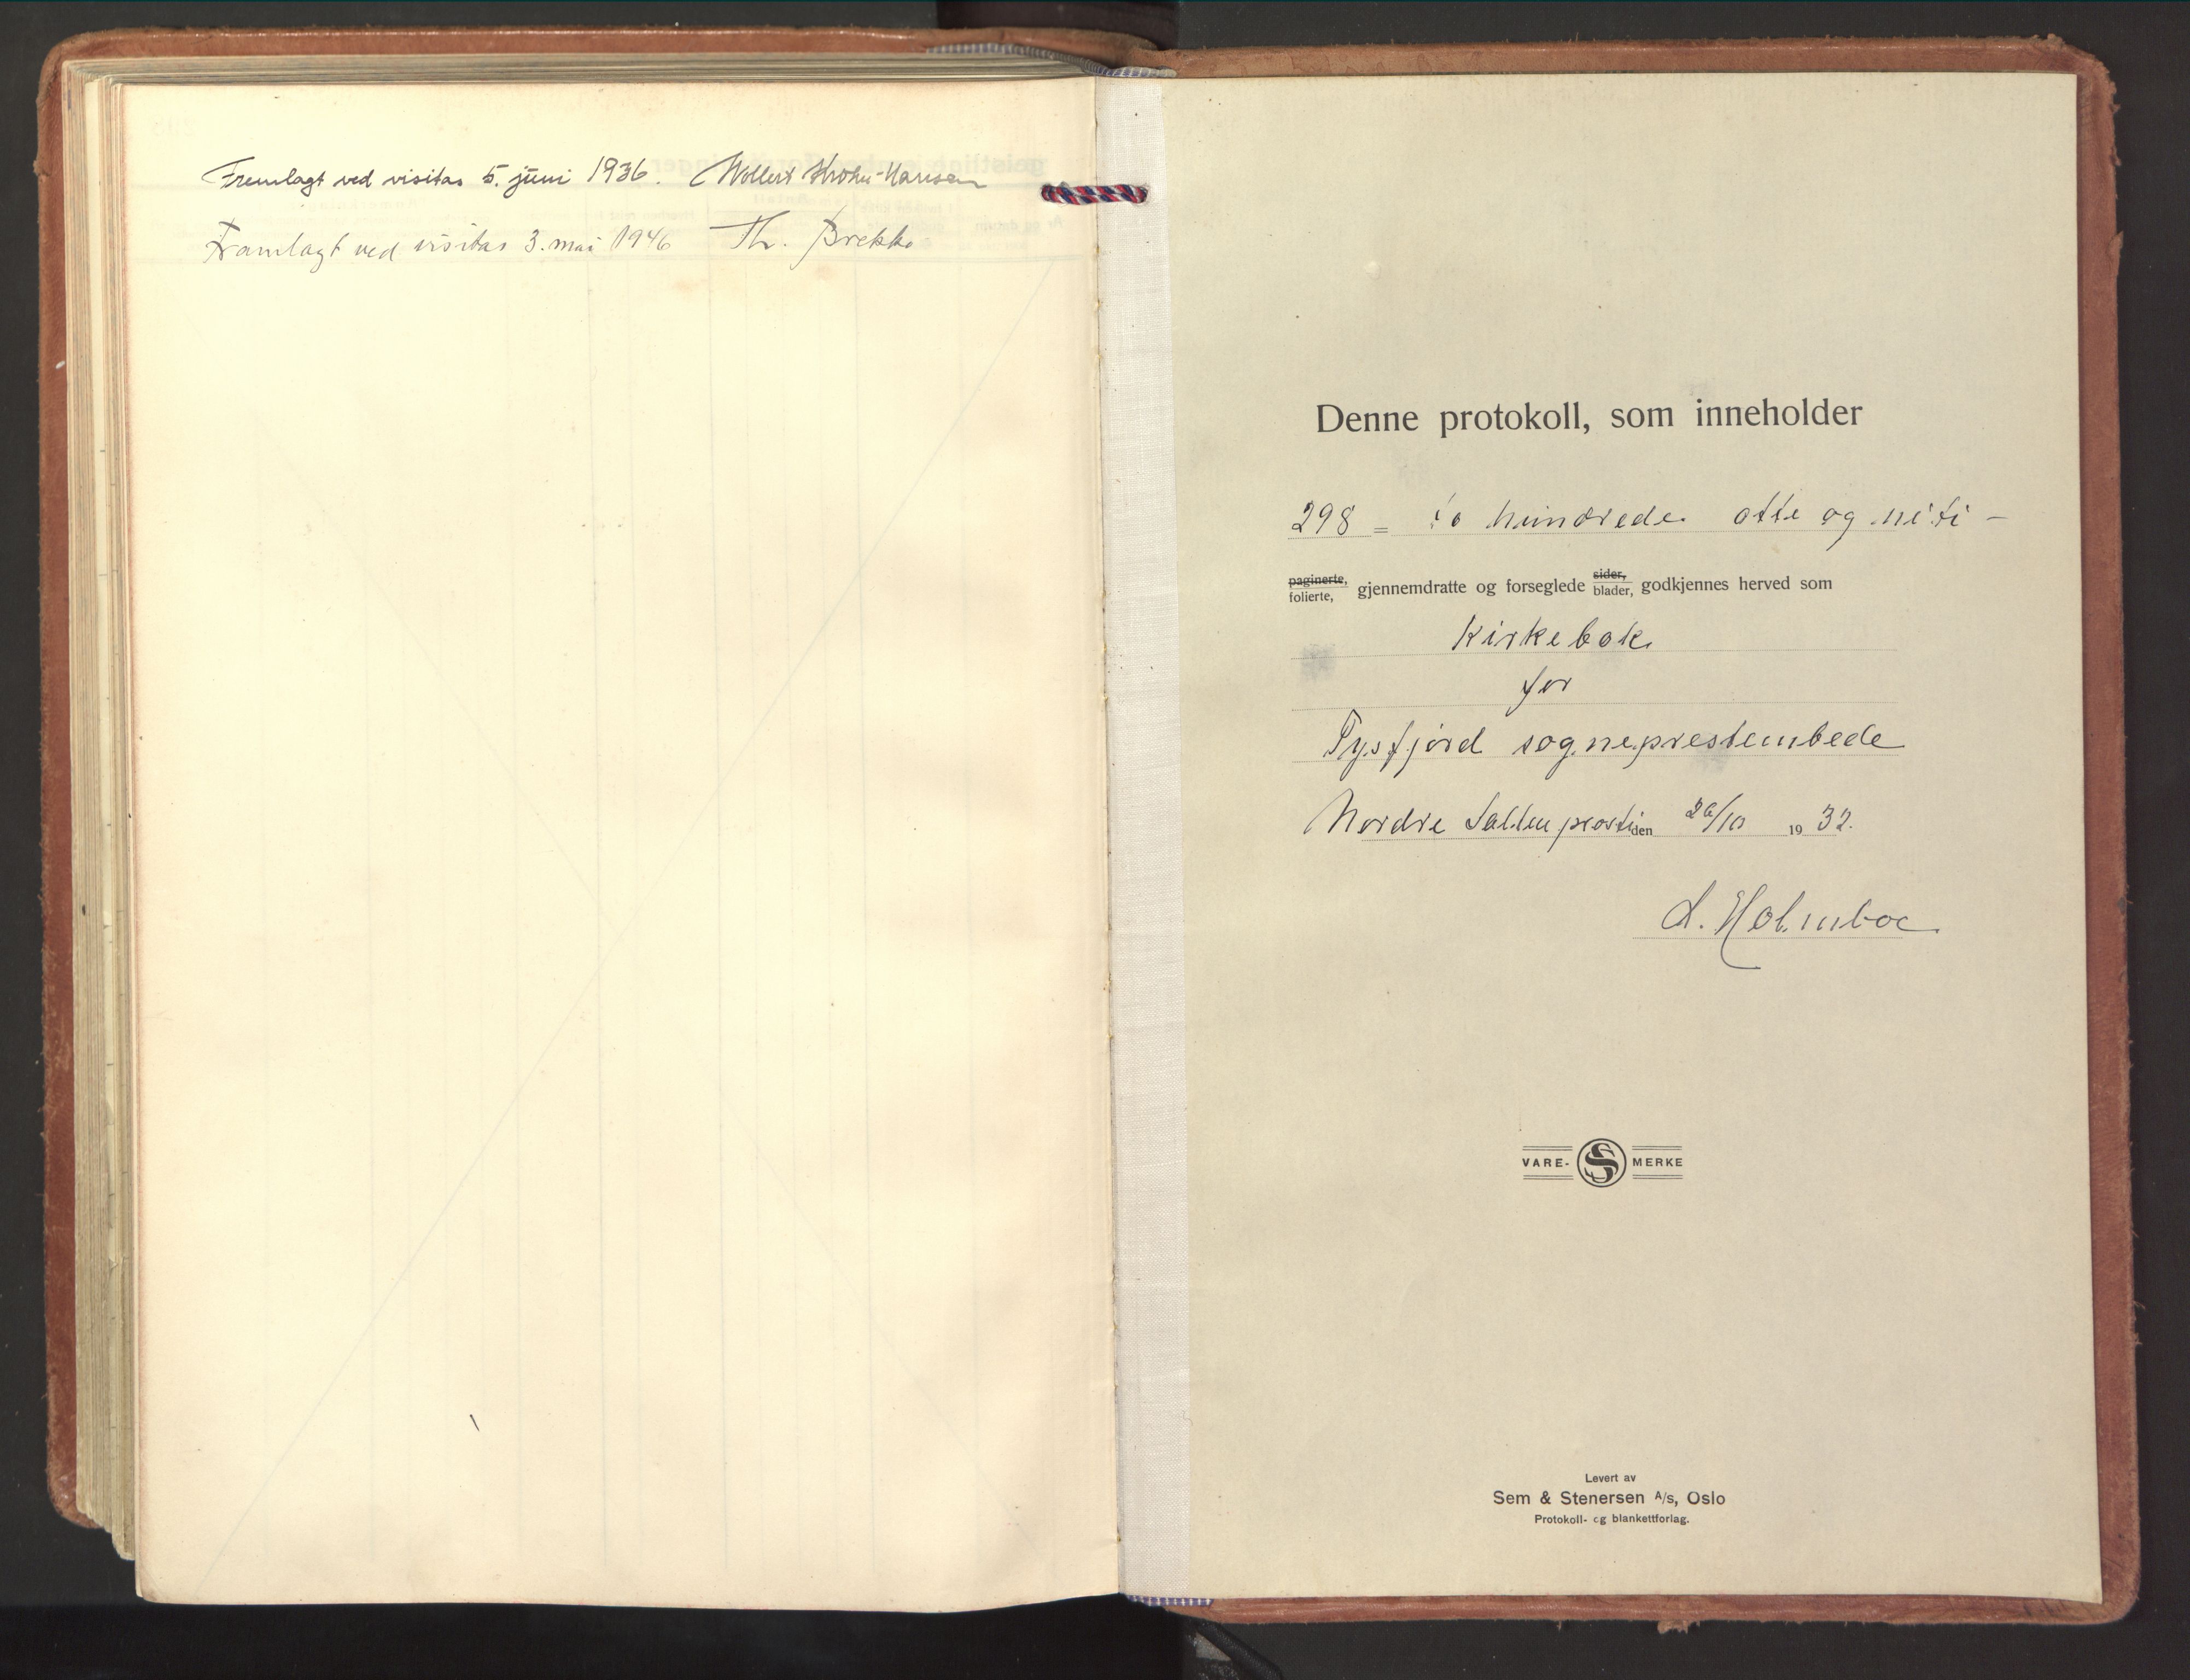 Fremlagt ved visitas 5. juni 1936. Wollert Krohn-Hansen
Framlagt ved visitas 3. mai 1946 Th. Brekke
Denne protokoll, som inneholder
298 = to hundrede otte og niti -
paginerte, folierte, gjennemdratte og forseglede sider, blader, godkjennes herved som
Kirkebok
for
Tysfjord sogneprestembede
Nordre Salten prosti den 26/10 1932.
L. Holmboe
VARE- S MERKE
Levert av
Sem & Stenersen A/s, Oslo
Protokoll- og blankettforlag.